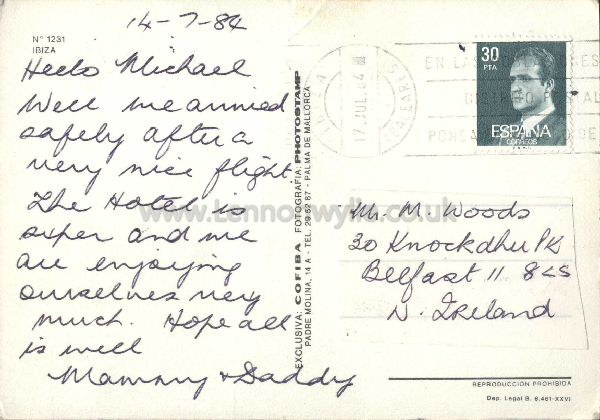 14-7-84
Nº 1231
IBIZA
Hello Michael
Well we arrived
safely after a
very nice flight
The Hotel is
super and we
are enjoying
ourselves very
much. Hope all
is well
Mammy + Daddy
EXCLUSIVA: COFIBA FOTOGRAFIA: PHOTOSTAMP
PADRE MOLINA, 14 A - TEL. 29 52 87 - PALMA DE MALLORCA
17 JUL. 84
BALEARES
EN LAS
PONGA
30
PTA
ESPAÑA
CORREOS
Mr. M. Woods
30 Knockdhu Pk
Belfast 11 8LS
N. Ireland
REPRODUCCIÓN PROHIBIDA
Dep. Legal B. 6.461-XXVI